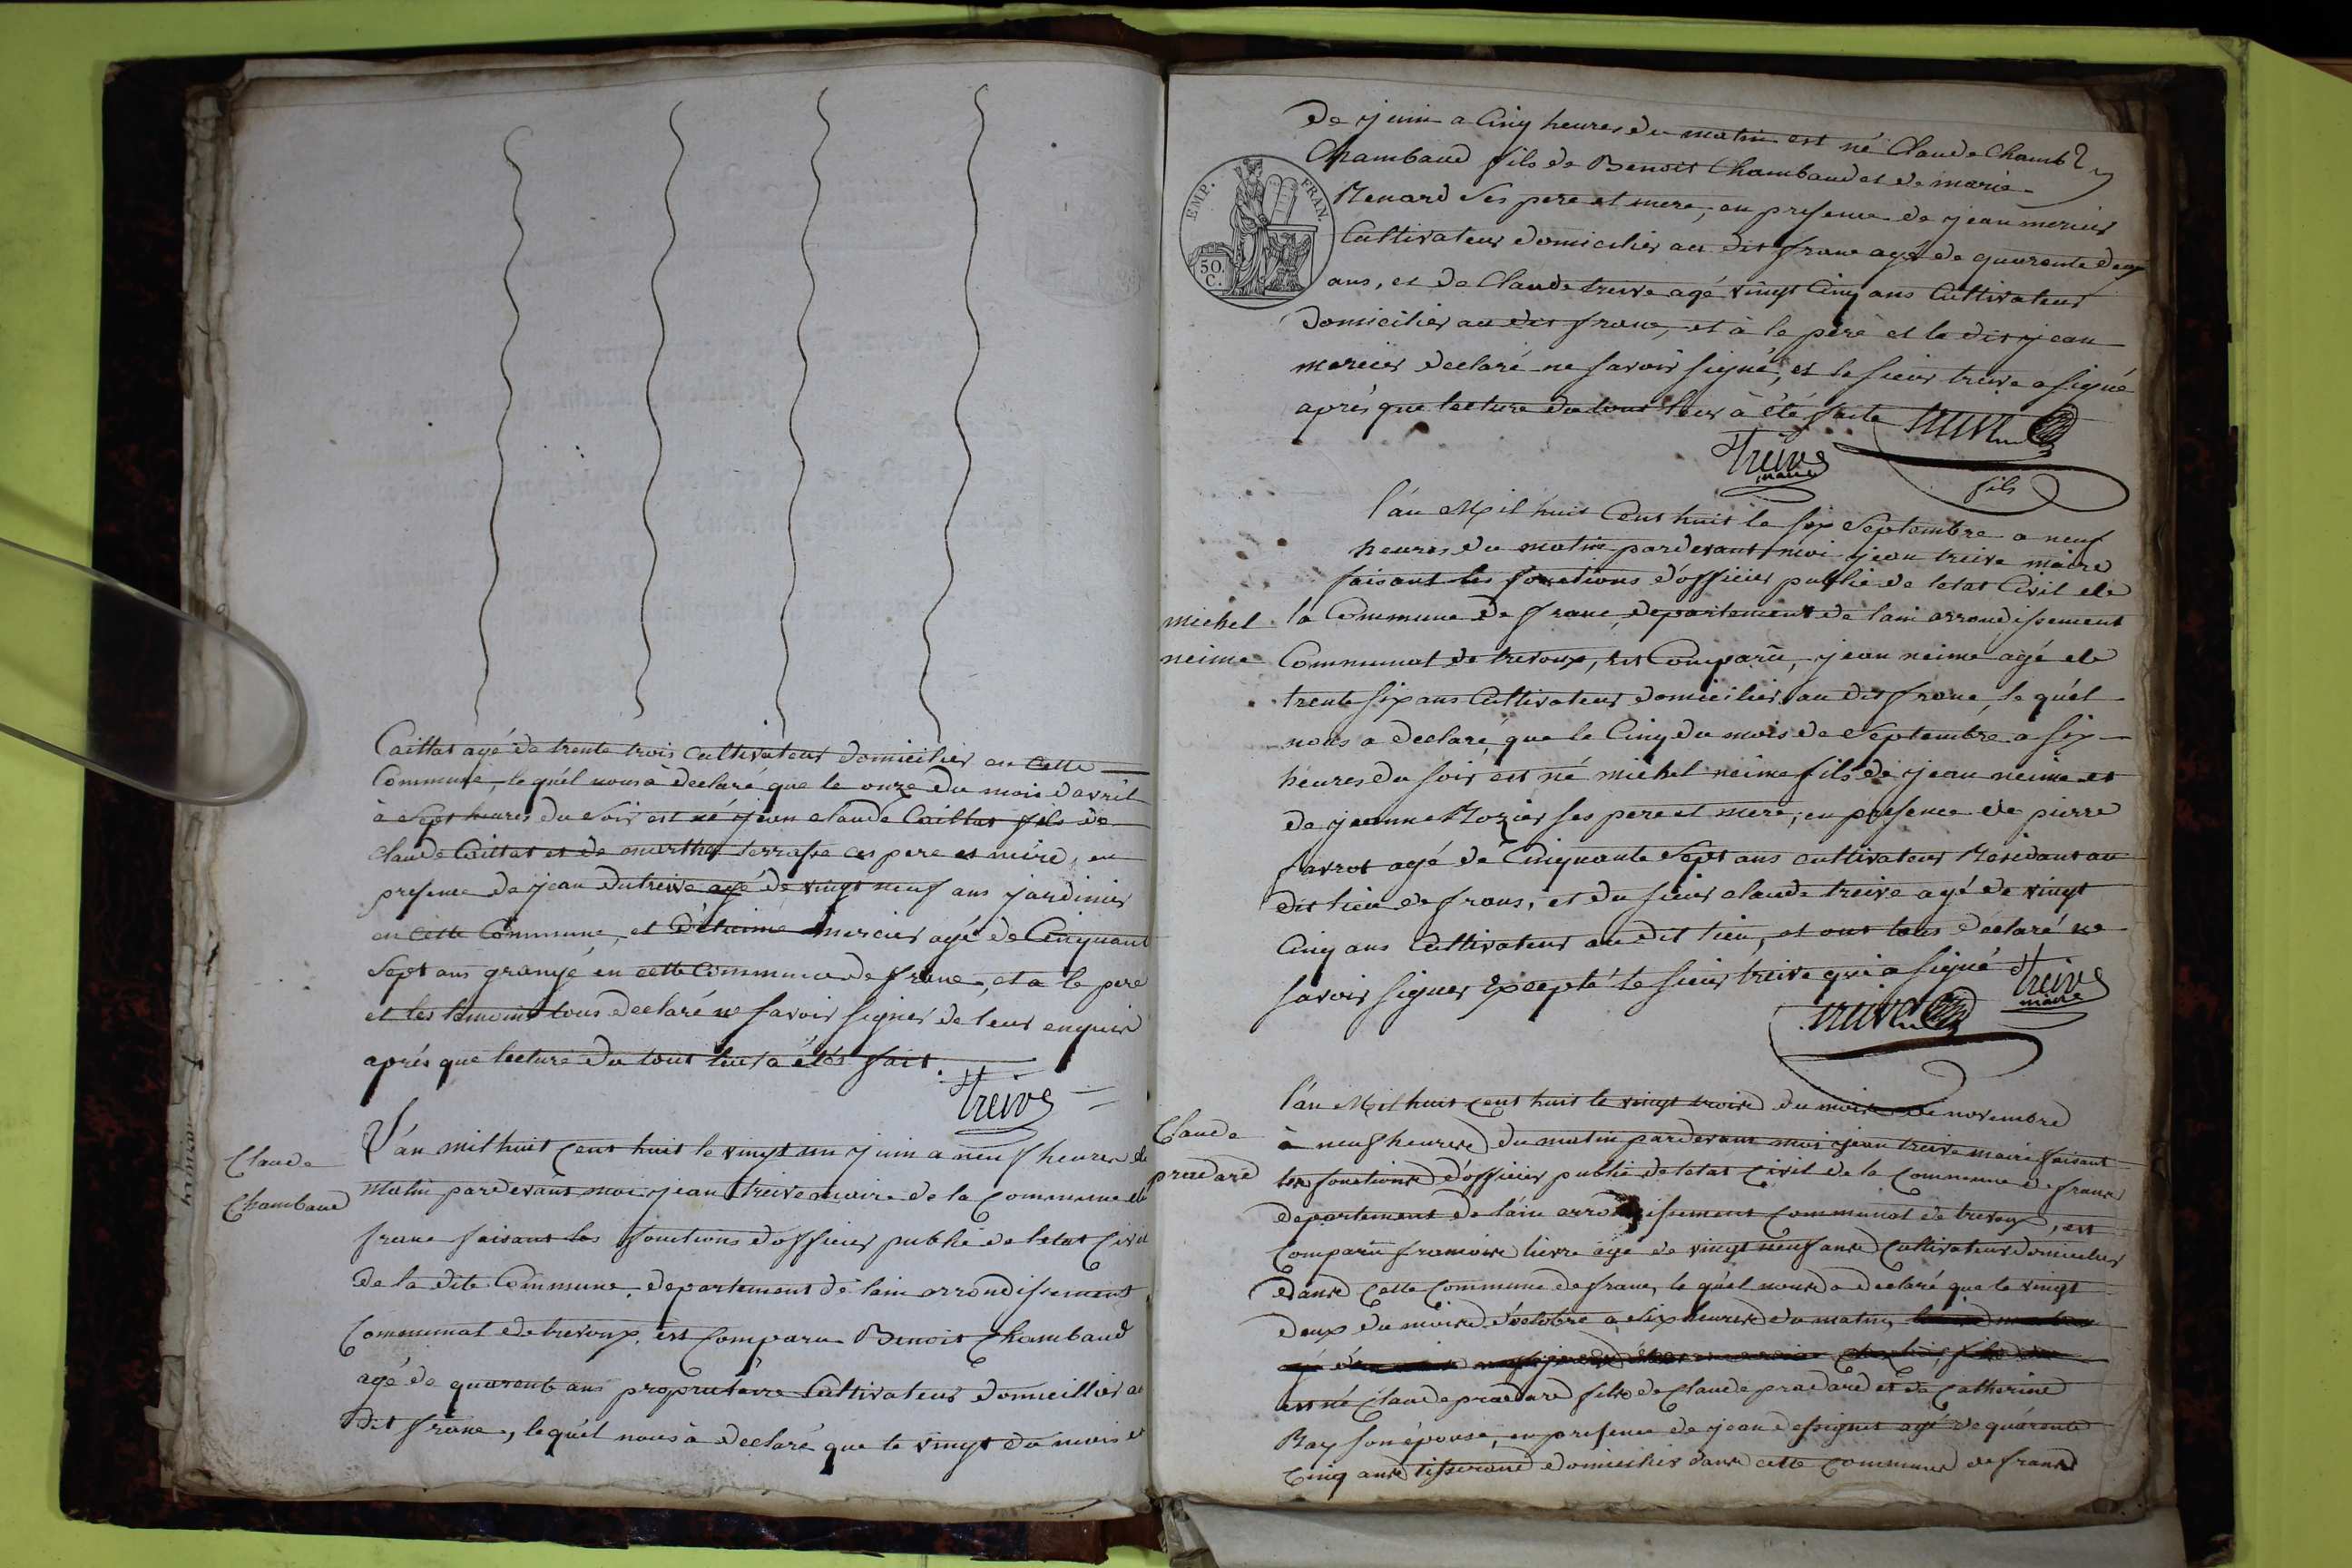 Caillat agé de trente trois cultivateur domicilier en cette
Commune, le quél nous à declaré que le onze du mois davril
à Sept heures du Soir est né jean claude Caillat fils de
claude Caillat et de marthe terrasse ces pere et mere, en
presence de jean dutreive agé de vingt neuf ans jardinier
en cette Commune, et mercier agé de Cinquant
Sept ans grangé en cette Commune de franc, et a le pere
et les temoins tous declaré ne savoir signer de leur enquis
aprés que lecture du tout leur a étés fait.
Treive
Claude
Chambaud
l'án mil huit cent huit le vingt un juin a neuf heures du
matin pardevant moi jean treive maire de la commune de
franc faisant les fonctions d'officier public de letat civil
de la dite Commune, departement de lain arrondissement
Communal de trevoux, est comparu Benoit Chambaud
agé de quarente ans proprietaire Cultivateur domicillier au
dit franc, le quél nous à declaré que le vingt du mois
de juin a Cinq heures du matin est né Claude Chamb
Chambaud fils de Benoit Chambaud et de marie
EMP. FRAN.
50. C.
Renard Ses pere et mere, en presence de jean mercier
Cultivateur domicilier au dit franc agé de quarente deux
ans, et de Claude treive agé vingt Cinq ans Cultivateur
domicilier au dit franc, et à le pere et le dit jean
mercier declaré ne savoir signé, et le sieur treive a signé
aprés que lecture du tout leur à été faite treive
Treive
maire
fils
l'án Mil huit Cent huit le six Septembre a neuf
heures du matin pardevant moi jean treive maire
faisant les fonctions d'officier public de letat Civil de
michel
neime
la Commune de franc, departement de lain arrondissement
Communal de trevoux, est Comparu, jean neime agé de
trente six ans Cultivateur domicilier au dit franc, le quél
nous a declaré, que le Cinq du mois de Septembre a six
heures du soir est né michel neime fils de jean neime et
de jeanne Rozier ses pere et mere, en presence de pierre
favrot agé de Cinquante Sept ans cultivateur Residant au
dit lieu de frans, et du sieur claude treive agé de vingt
Cinq ans Cultivateur au dit lieu, et ont tous declaré ne
savoir signer Excepté le sieur treive qui a signé Treive
maire
treive
Claude
pradare
l'án Mil huit cent huit le vingt trois du mois de novembre
à neuf heures du matin pardevant moi jean treive maire faisant
les fonctions d'officier public de letat civil de la Commune de frans
departement de láin arrondissement communal de trevoux, est
Comparu francois lievre agé de vingt neuf ans Cultivateur domicilier
dans cette commune de franc, le quél nous a declaré que le vingt
deux du mois d'octobre a six heures du matin,
est né Claude pradare fils de Claude pradare et de Catherine
Ray son épouse, en presence de jean dessignet agé de quárente
Cinq ans tisserand domicilier dans cette commune de frans